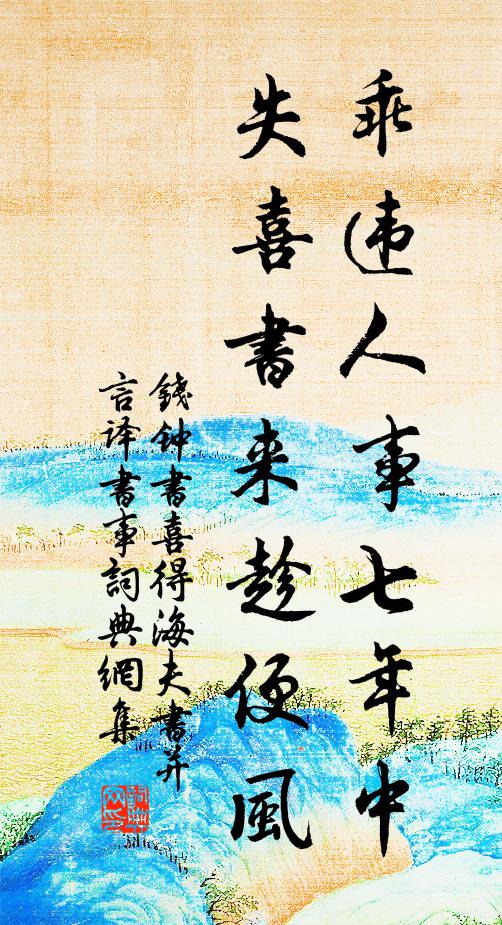 乖违人事七年中
失喜書来趁便風
錢钟書喜得海夫書并
言译書事詞典網集